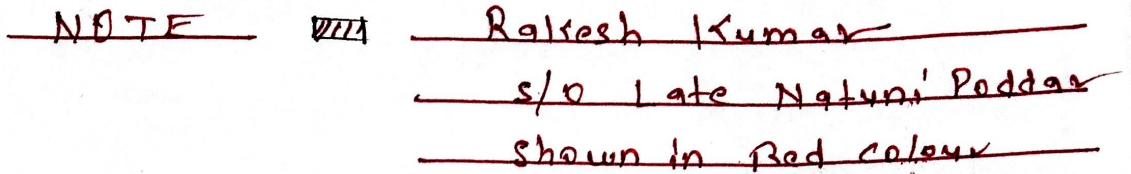 NOTE Rakesh Kumar
s/o Late Natuni Poddar
shown in Red colour